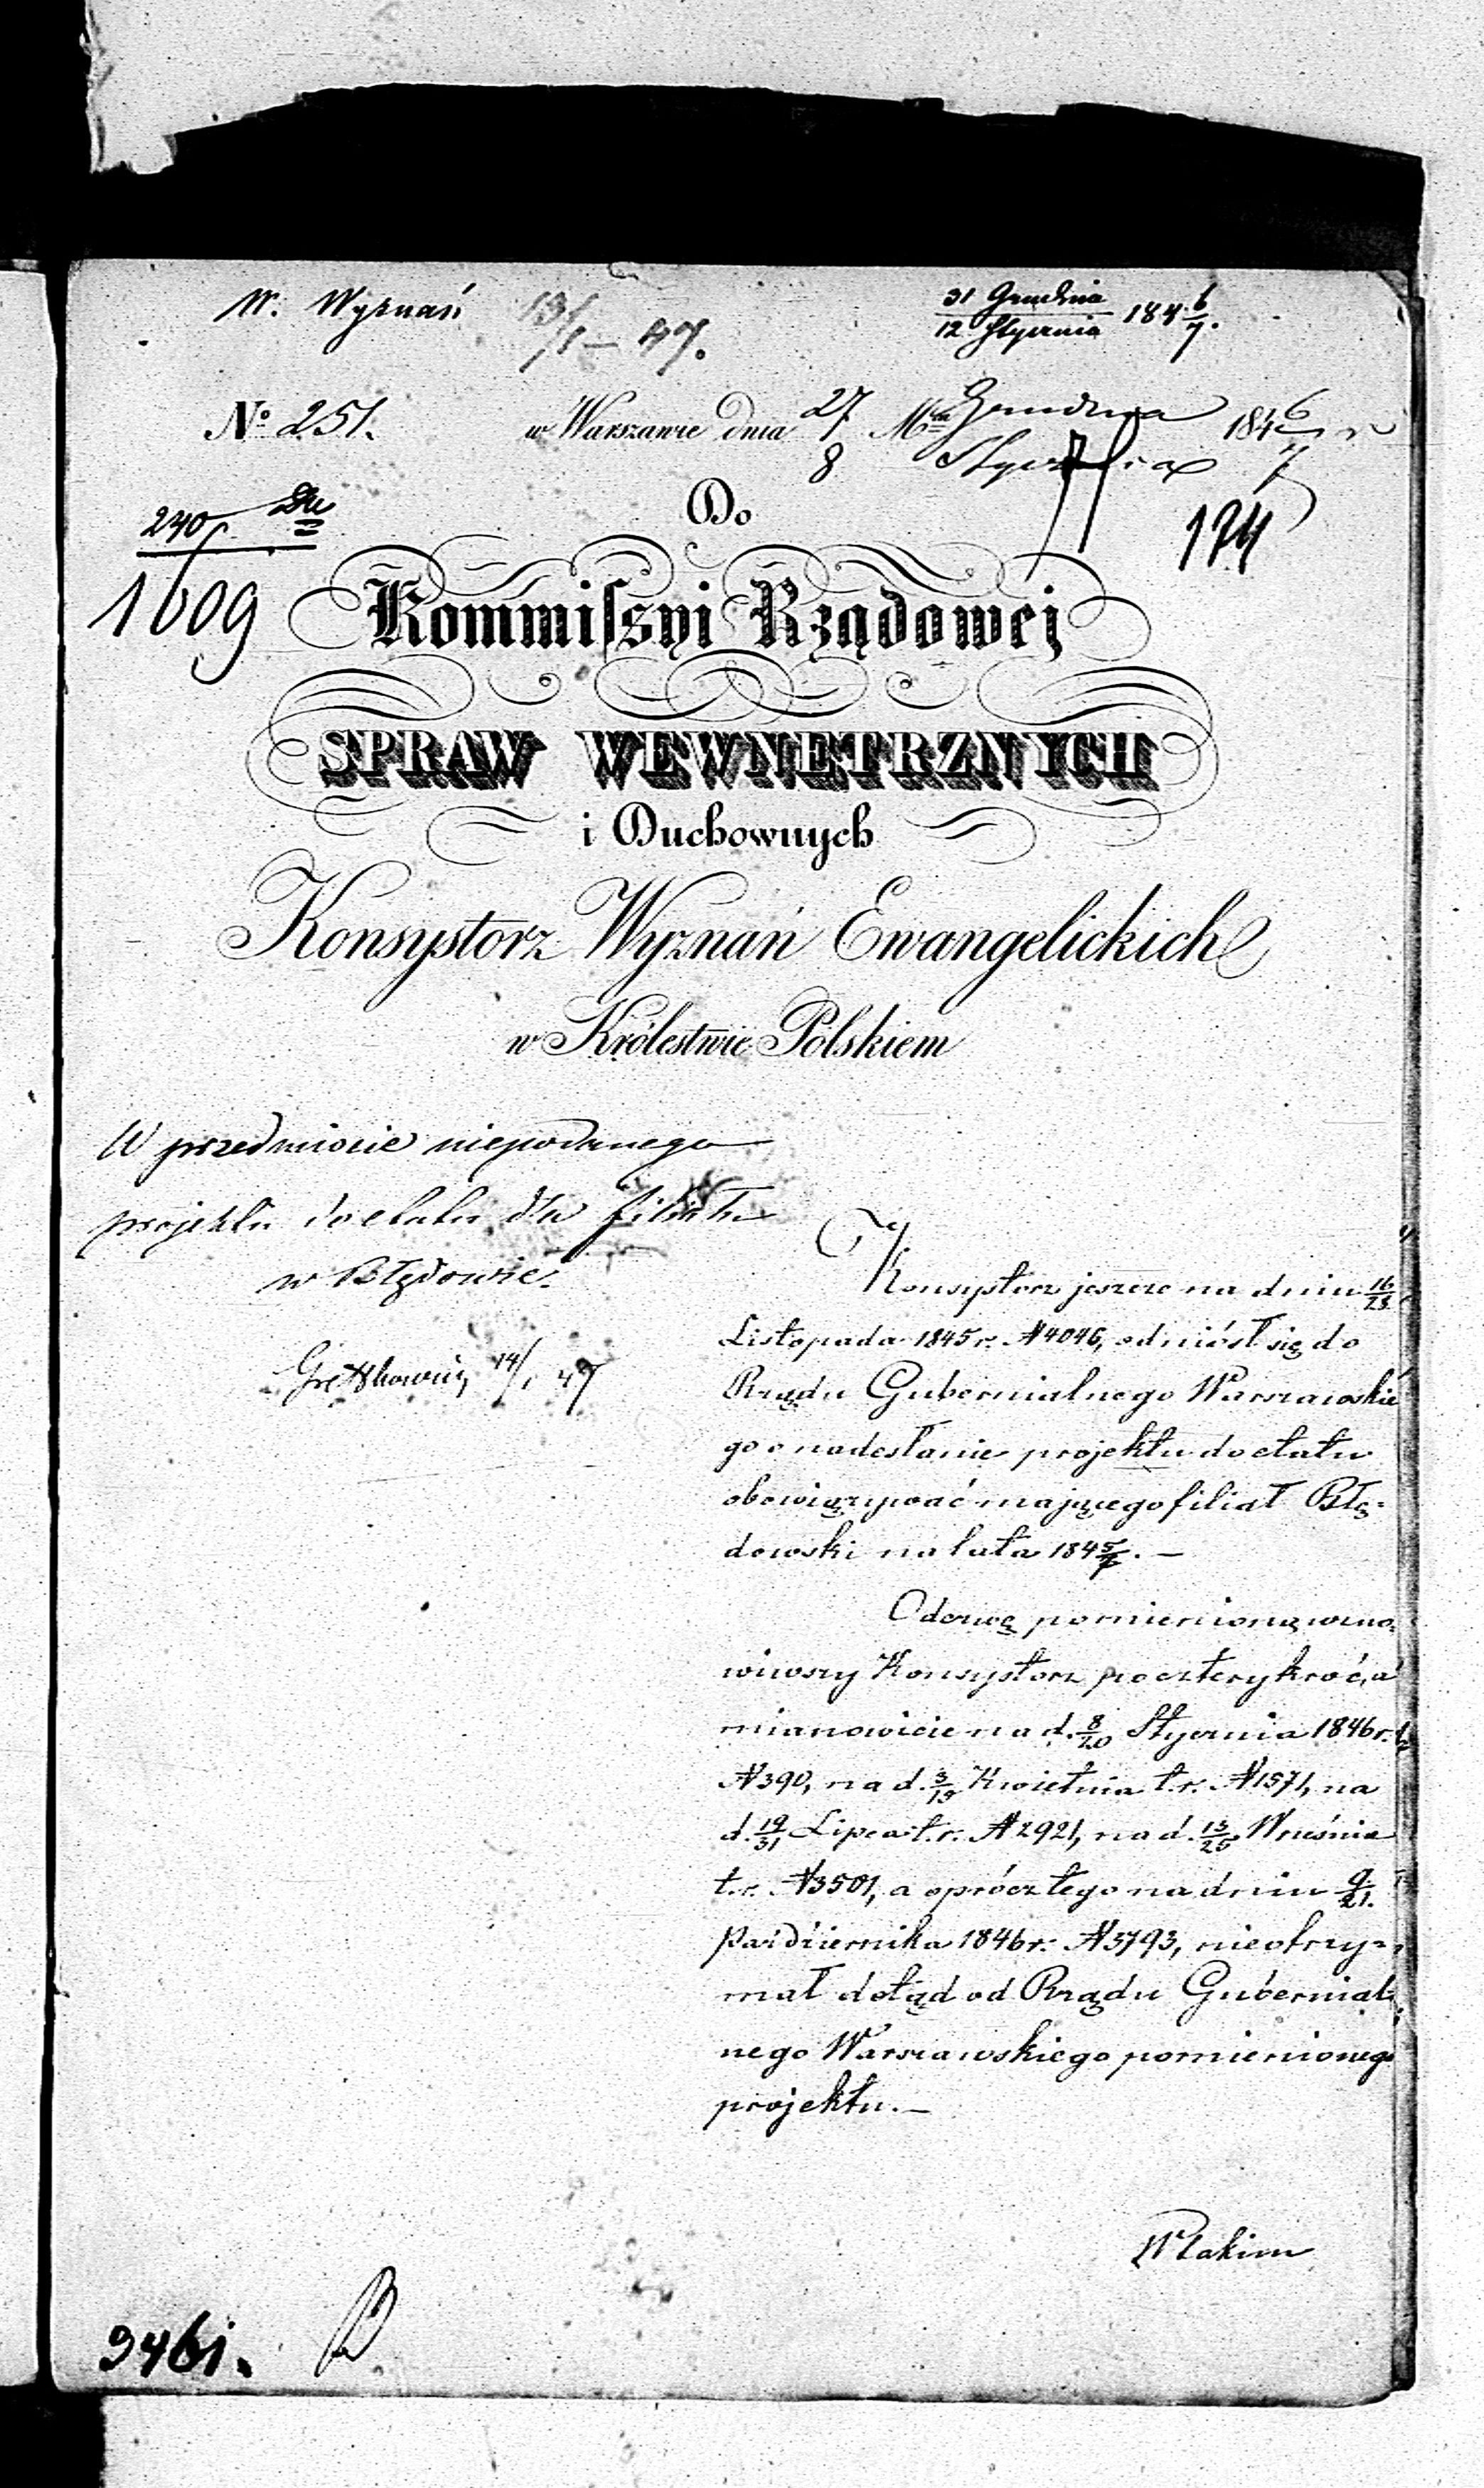 W. Wyznań 13/1 – 47.
31 Grudnia / 12 Stycznia 184 6/7.
№ 251. w Warszawie dnia 27/8 Mca Grudnia / Stycznia 184 6/7 r
174
240
1609
Do
Kommissyi Rządowej
SPRAW WEWNĘTRZNYCH
i Duchownych
Konsystorz Wyznań Ewangelickich
w Królestwie Polskiem
W przedmiocie niepodanego
projektu do etatu dla filiału
w Błędowie.
14/1 47
Konsystorz jeszcze na dniu 16/28
Listopada 1845 r. N 4046, odniósł się do
Rządu Gubernialnego Warszawskie
go o nadesłanie projektu do etatu
obowiązywać mającego filiał Błę-
dowski na lata 184 5/7. —
Odezwę pomienioną wzno-
wiwszy Konsystorz po cztery kroć, a
mianowicie na d. 8/20 Stycznia 1846 r.
N 390, na d. 3/15 Kwietnia t.r. N 1571, na
d. 19/31 Lipca t.r. N 2921, na d. 13/25 Września
t.r. N 3501, a oprócz tego na dniu 9/21.
Października 1846 r. N 3793, nie otrzy-
mał dotąd od Rządu Gubernial-
nego Warszawskiego pomienionego
projektu. —
W takim
9461.